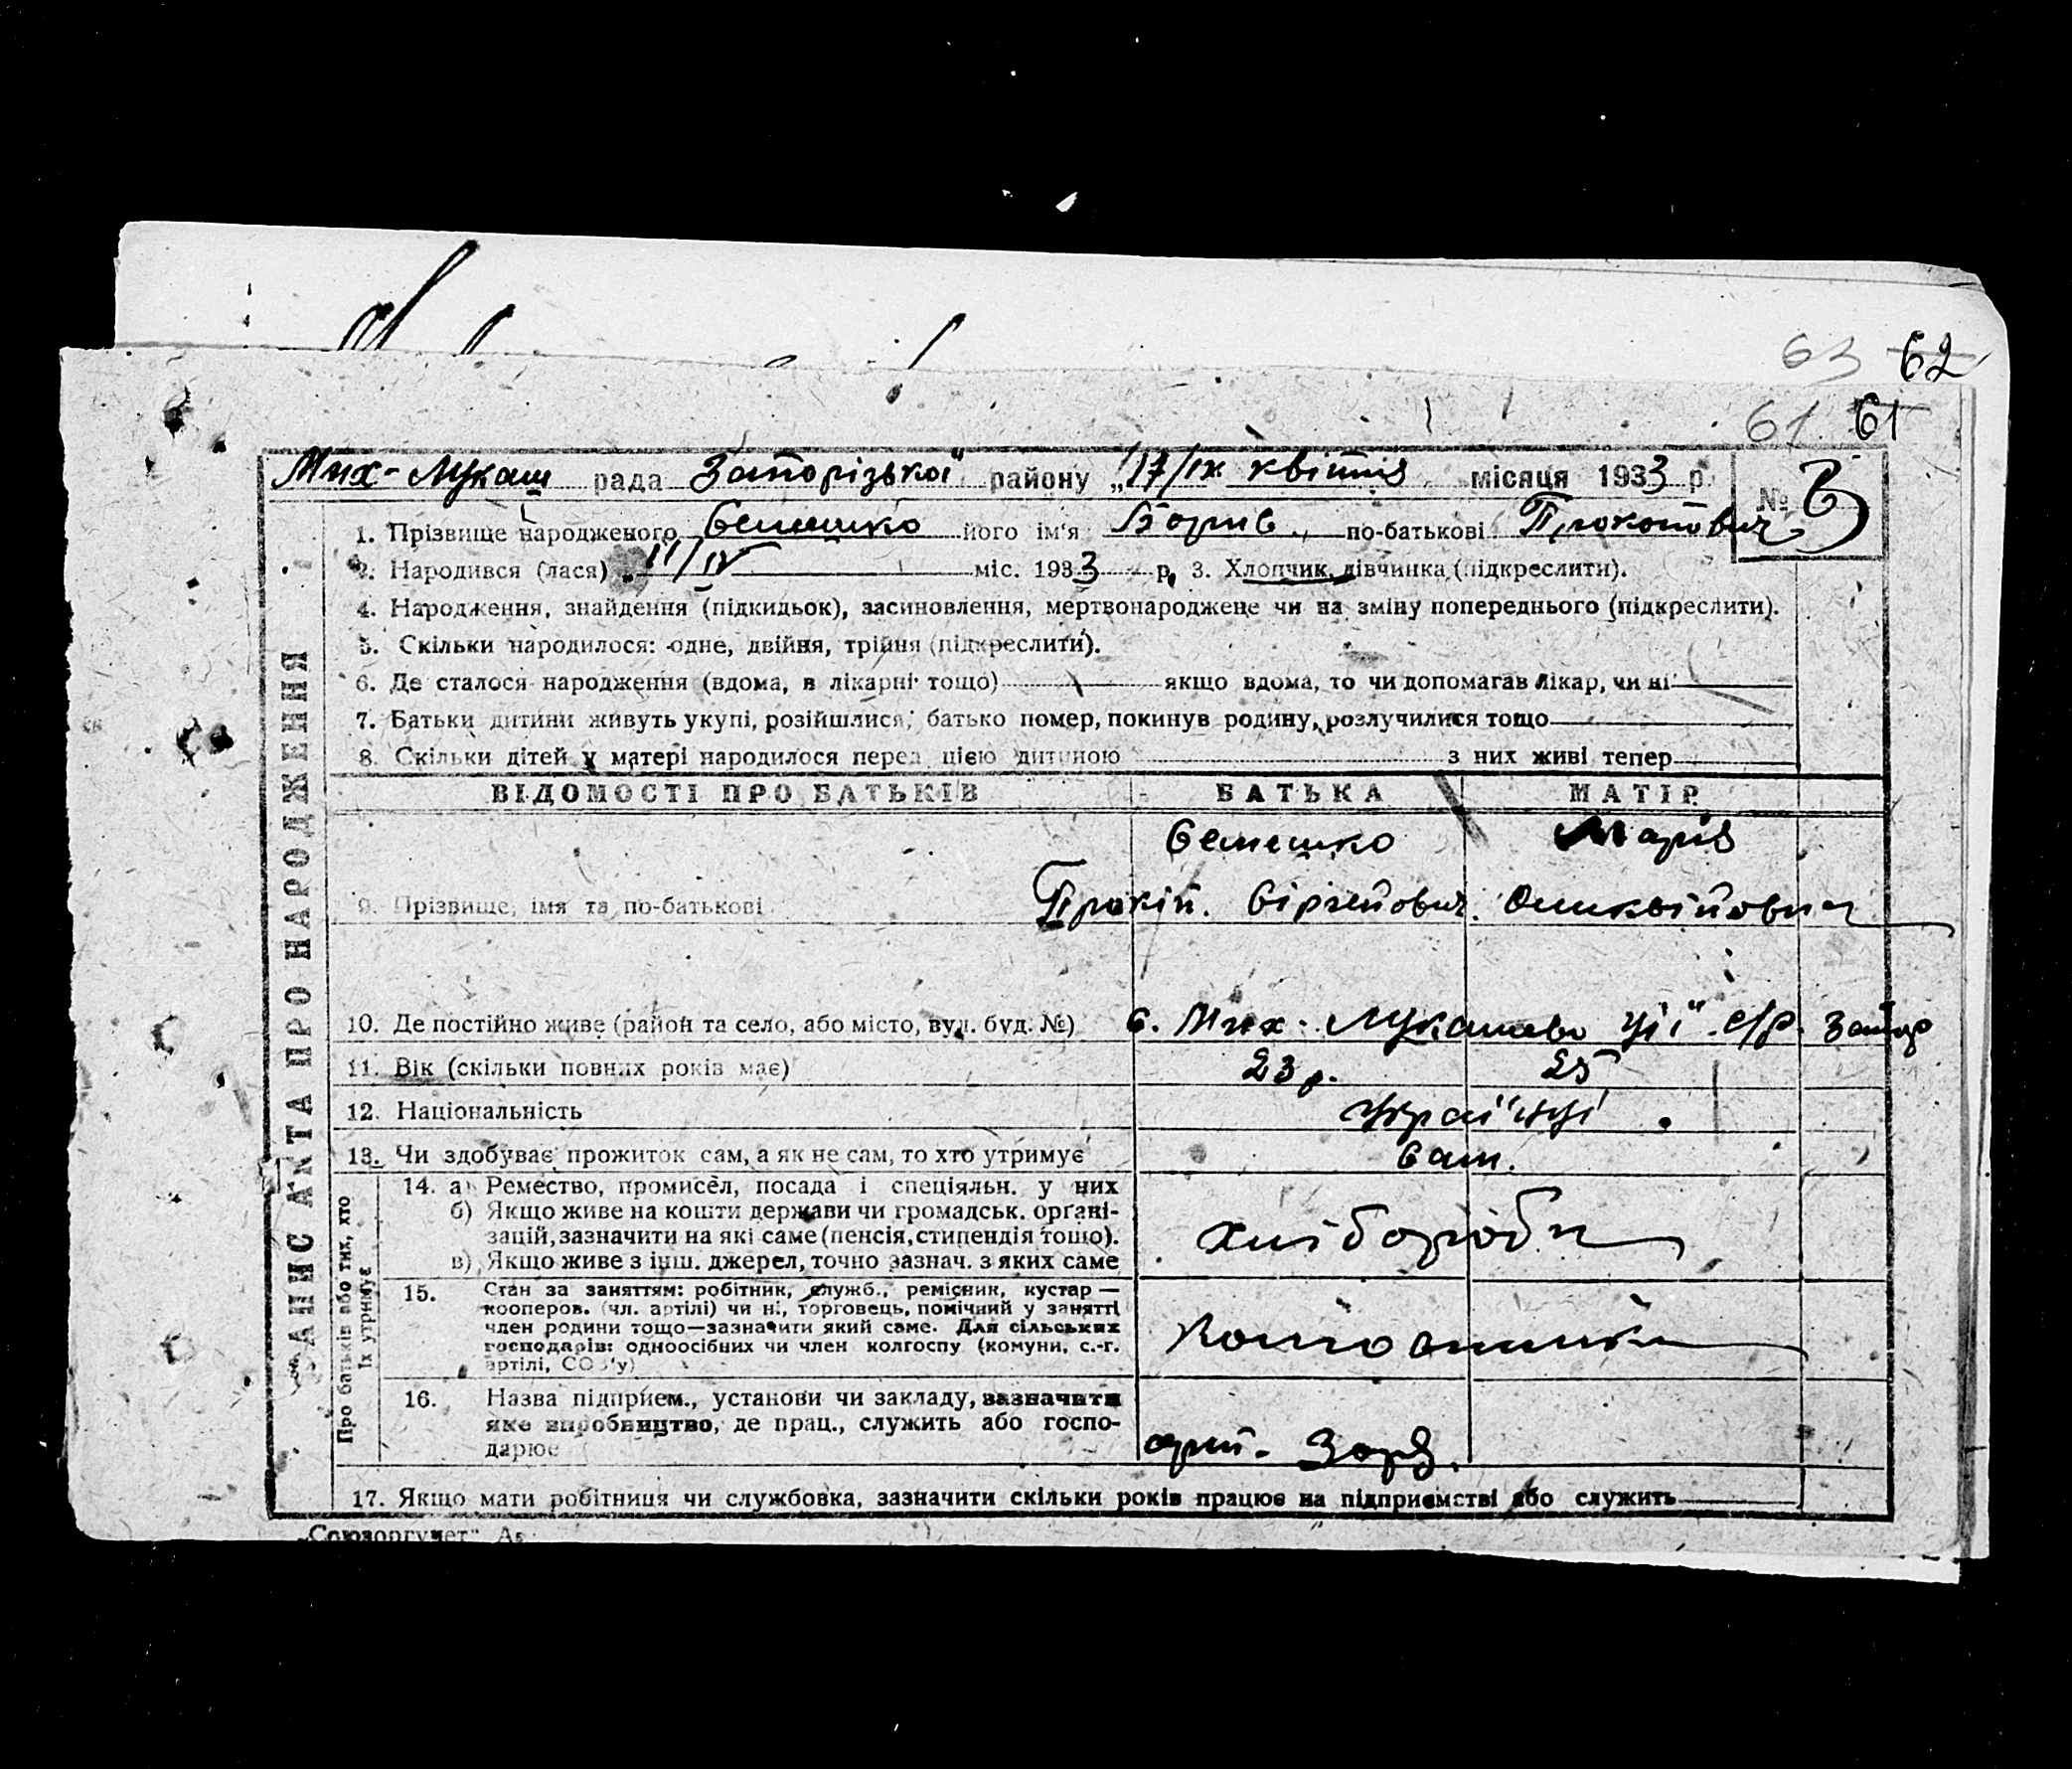 63 62
61 61
Мих-Лукаш рада Запорізької району „17/IX квітня місяця 1933 р. № 3
1. Прізвище народженого Семешко його ім'я Борис по-батькові Прокопович
2. Народився (лася) 11/IV міс. 1933 р. 3. Хлопчик, дівчинка (підкреслити).
4. Народження, знайдення (підкидьок), засиновлення, мертвонароджене чи на зміну попереднього (підкреслити).
5. Скільки народилося: одне, двійня, трійня (підкреслити).
6. Де сталося народження (вдома, в лікарні тощо) якщо вдома, то чи допомагав лікар, чи ні
7. Батьки дитини живуть укупі, розійшлися, батько помер, покинув родину, розлучилися тощо
8. Скільки дітей у матері народилося перед цією дитиною з них живі тепер
ВІДОМОСТІ ПРО БАТЬКІВ БАТЬКА МАТІР
Семешко Марія
9. Прізвище, імя та по-батькові Прокіп.
10. Де постійно живе (район та село, або місто, вул. буд. №) с. Мих-Лукашево ції с/р. Запор
11. Вік (скільки повних років має) 23 р. 25
12. Національність Україінці
13. Чи здобуває прожиток сам, а як не сам, то хто утримує Сам.
14. а) Ремество, промисел, посада і спеціяльн. у них
б) Якщо живе на кошти держави чи громадськ. органі-
зацій, зазначити на які саме (пенсія, стипендія тощо).
в) Якщо живе з інш. джерел, точно зазнач. з яких саме
хлібороби
15. Стан за заняттям: робітник, служб., ремісник, кустар —
кооперов. (чл. артілі) чи ні, торговець, помічний у занятті
член родини тощо—зазначити який саме. Для сільських
господарів: одноосібних чи член колгоспу (комуни, с.-г.
артілі, СОЗ'у)
16. Назва підприєм., установи чи закладу, зазначити
яке виробництво, де прац., служить або госпо-
дарює арт. Зоря.
17. Якщо мати робітниця чи службовка, зазначити скільки років працює на підприємстві або служить
ЗАПИС АКТА ПРО НАРОДЖЕННЯ
Про батьків або тих, хто
їх утримує
„Союзоргучет"